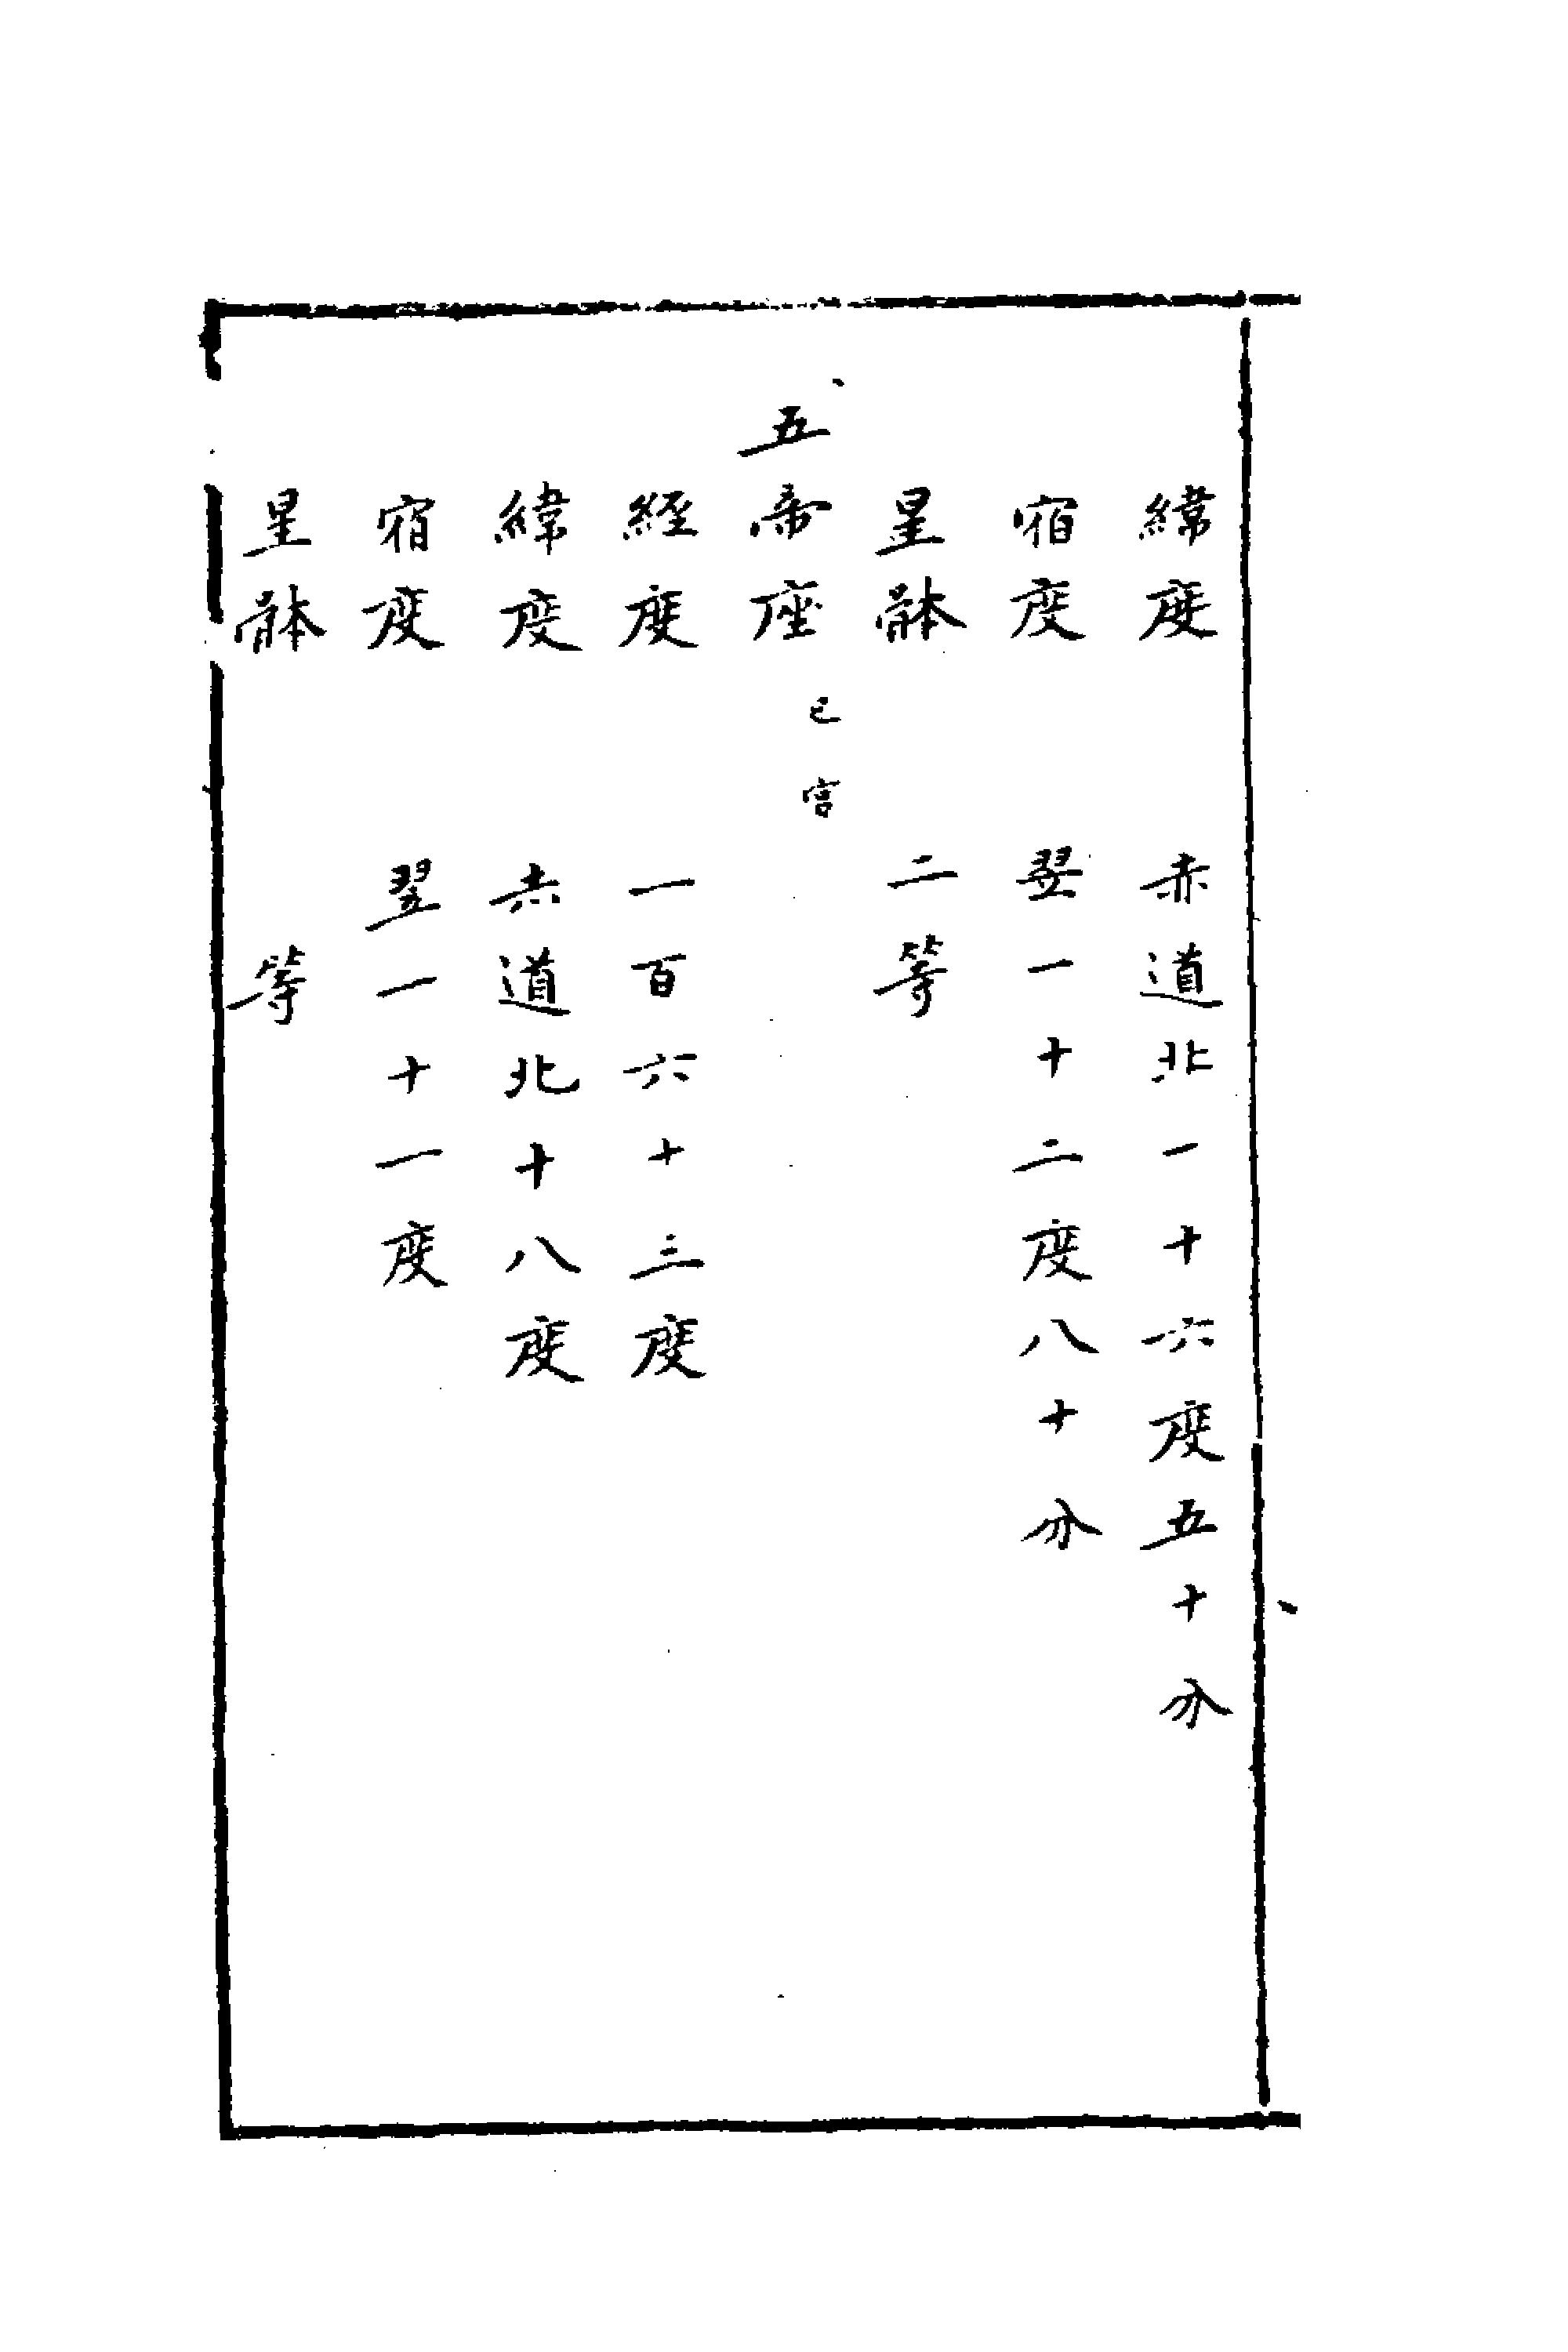 緯度　赤道北一十六度五十分
宿度　翌一十二度八十分
星骵　二等
五帝座　巳宮
經度　一百六十三度
緯度　赤道北十八度
宿度　翌一十一度
星骵　等